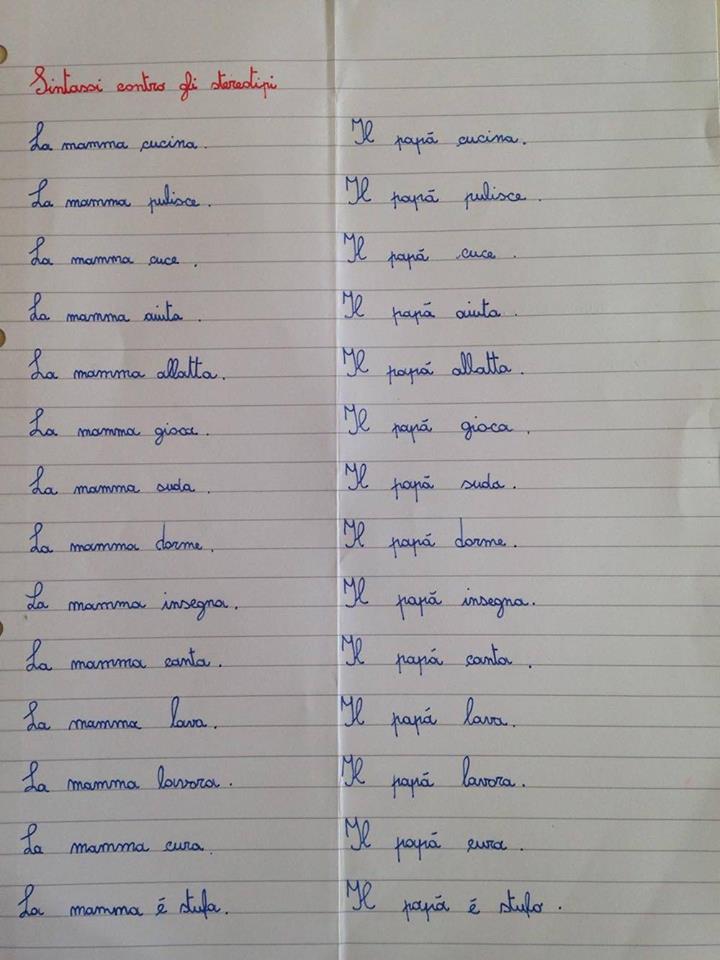 Sintassi contro gli stereotipi
La mamma cucina. Il papà cucina.
La mamma pulisce. Il papà pulisce.
La mamma cuce. Il papà cuce.
La mamma aiuta. Il papà aiuta.
La mamma allatta. Il papà allatta.
La mamma gioca. Il papà gioca.
La mamma suda. Il papà suda.
La mamma dorme. Il papà dorme.
La mamma insegna. Il papà insegna.
La mamma canta. Il papà canta.
La mamma lava. Il papà lava.
La mamma lavora. Il papà lavora.
La mamma cura. Il papà cura.
La mamma è stufa. Il papà è stufo.